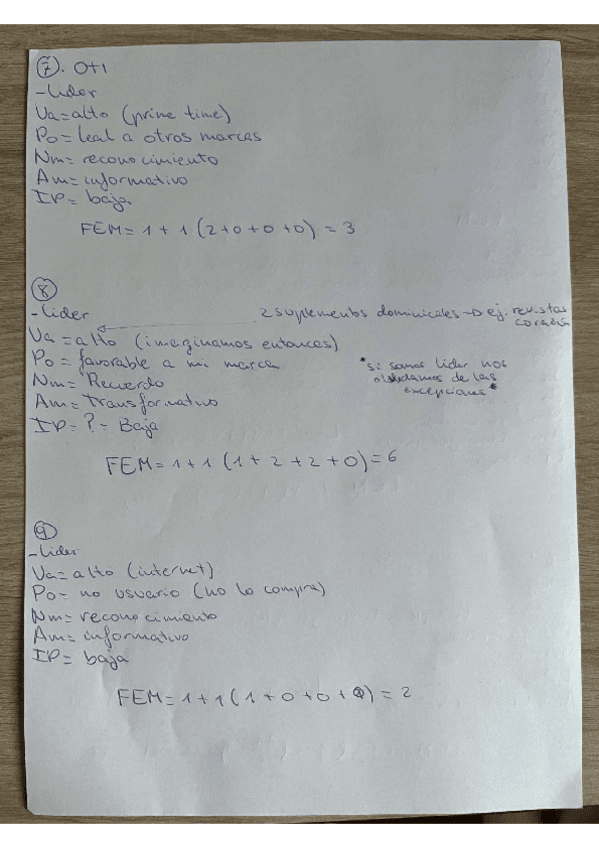 7. OTI
- Lider
Va = alto (prime time)
Po = leal a otras marcas
Nm = reconocimiento
Am = informativo
IP = baja
FEM = 1 + 1 (2 + 0 + 0 + 0) = 3
8
- Lider
2 suplementos dominicales → ej. revistas corazón
Va = alto (imaginamos entonces)
Po = favorable a mi marca
Nm = Recuerdo
Am = Transformativo
IP = ? = Baja
*si somos lider nos
olvidamos de las
excepciones*
FEM = 1 + 1 (1 + 2 + 2 + 0) = 6
9
- Lider
Va = alto (internet)
Po = no usuario (no lo compra)
Nm = reconocimiento
Am = informativo
IP = baja
FEM = 1 + 1 (1 + 0 + 0 + 0) = 2